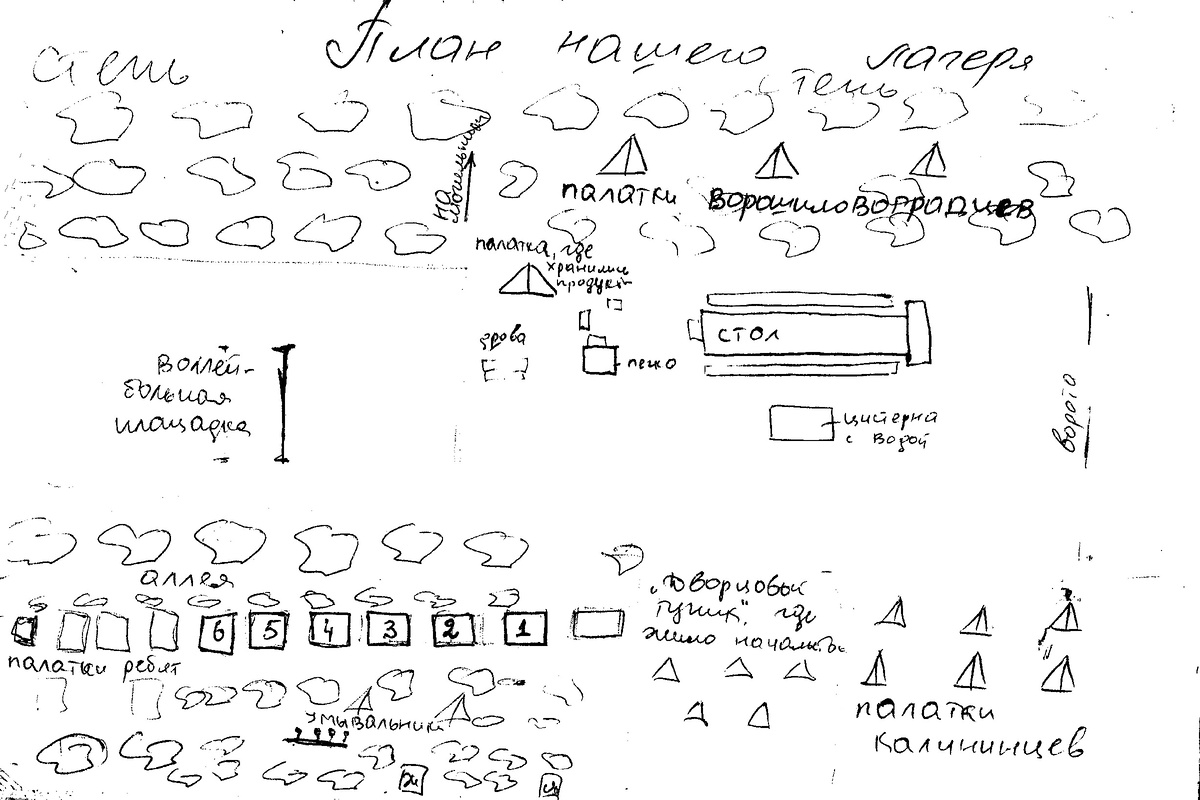 План нашего лагеря
степь
степь
на могильники
палатки ворошиловоградцев
палатка, где
хранились
продукты
дрова
печка
стол
цистерна
с водой
ворота
Воллей-
больная
площадка
аллея
6 5 4 3 2 1
палатки ребят
умывальники
"Дворцовый
тупик", где
жило начальство
палатки
Калининцев
Ж